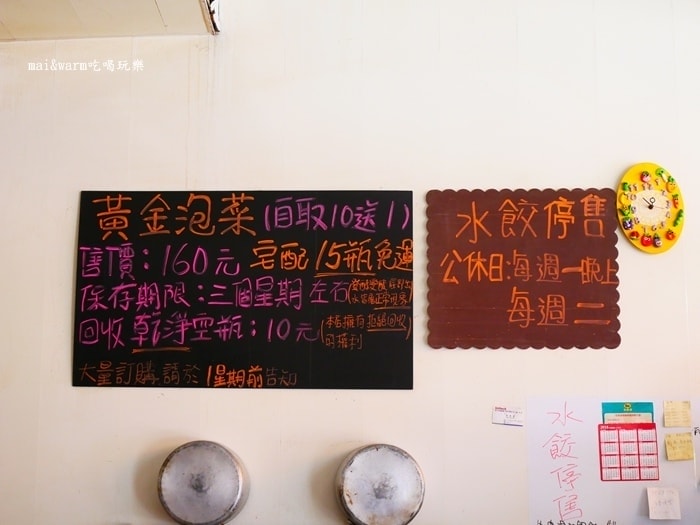 mai&warm吃喝玩樂
黃金泡菜(自取10送1)
售價：160元 宅配15瓶免運
保存期限：三個星期左右
回收乾淨空瓶：10元(本店擁有拒絕回收
的權利
大量訂購.請於1星期前告知
水餃停售
公休日:每週一晚上
每週二
水餃停售